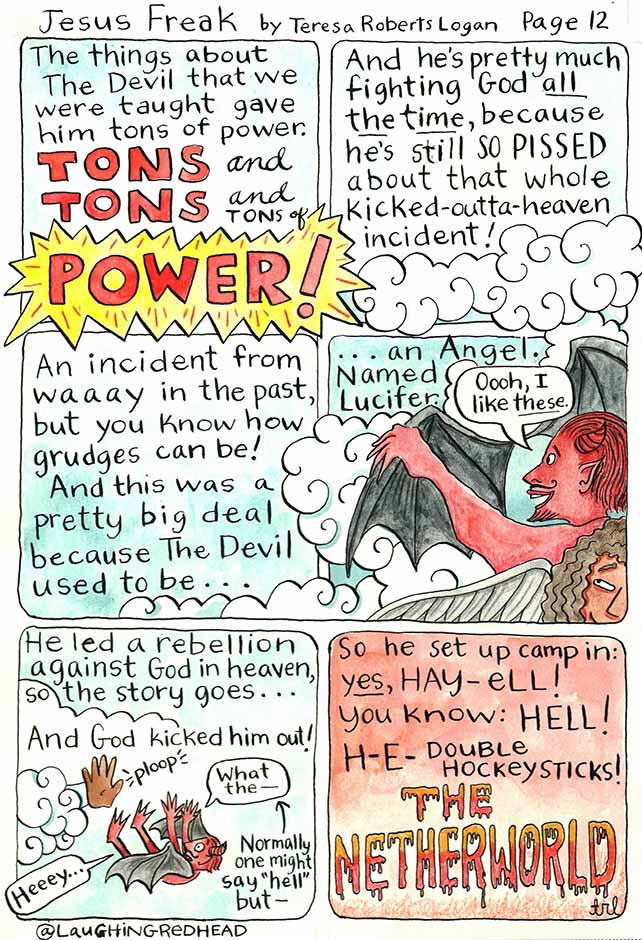 Jesus Freak by Teresa Roberts Logan Page 12
The things about
The Devil that we
were taught gave
him tons of power.
TONS and
TONS and
TONS of
POWER!
And he's pretty much
fighting God all
the time, because
he's still SO PISSED
about that whole
kicked-outta-heaven
incident!
An incident from
waaay in the past,
but you know how
grudges can be!
And this was a
pretty big deal
because The Devil
used to be...
...an Angel.
Named
Lucifer.
Oooh, I
like these.
He led a rebellion
against God in heaven,
so the story goes...
And God kicked him out!
ploop
What
the—
Heeey...
Normally
one might
say "hell"
but—
So he set up camp in:
yes, HAY-eLL!
You know: HELL!
H-E-DOUBLE
HOCKEYSTICKS!
THE
NETHERWORLD
trl
@LAUGHINGREDHEAD